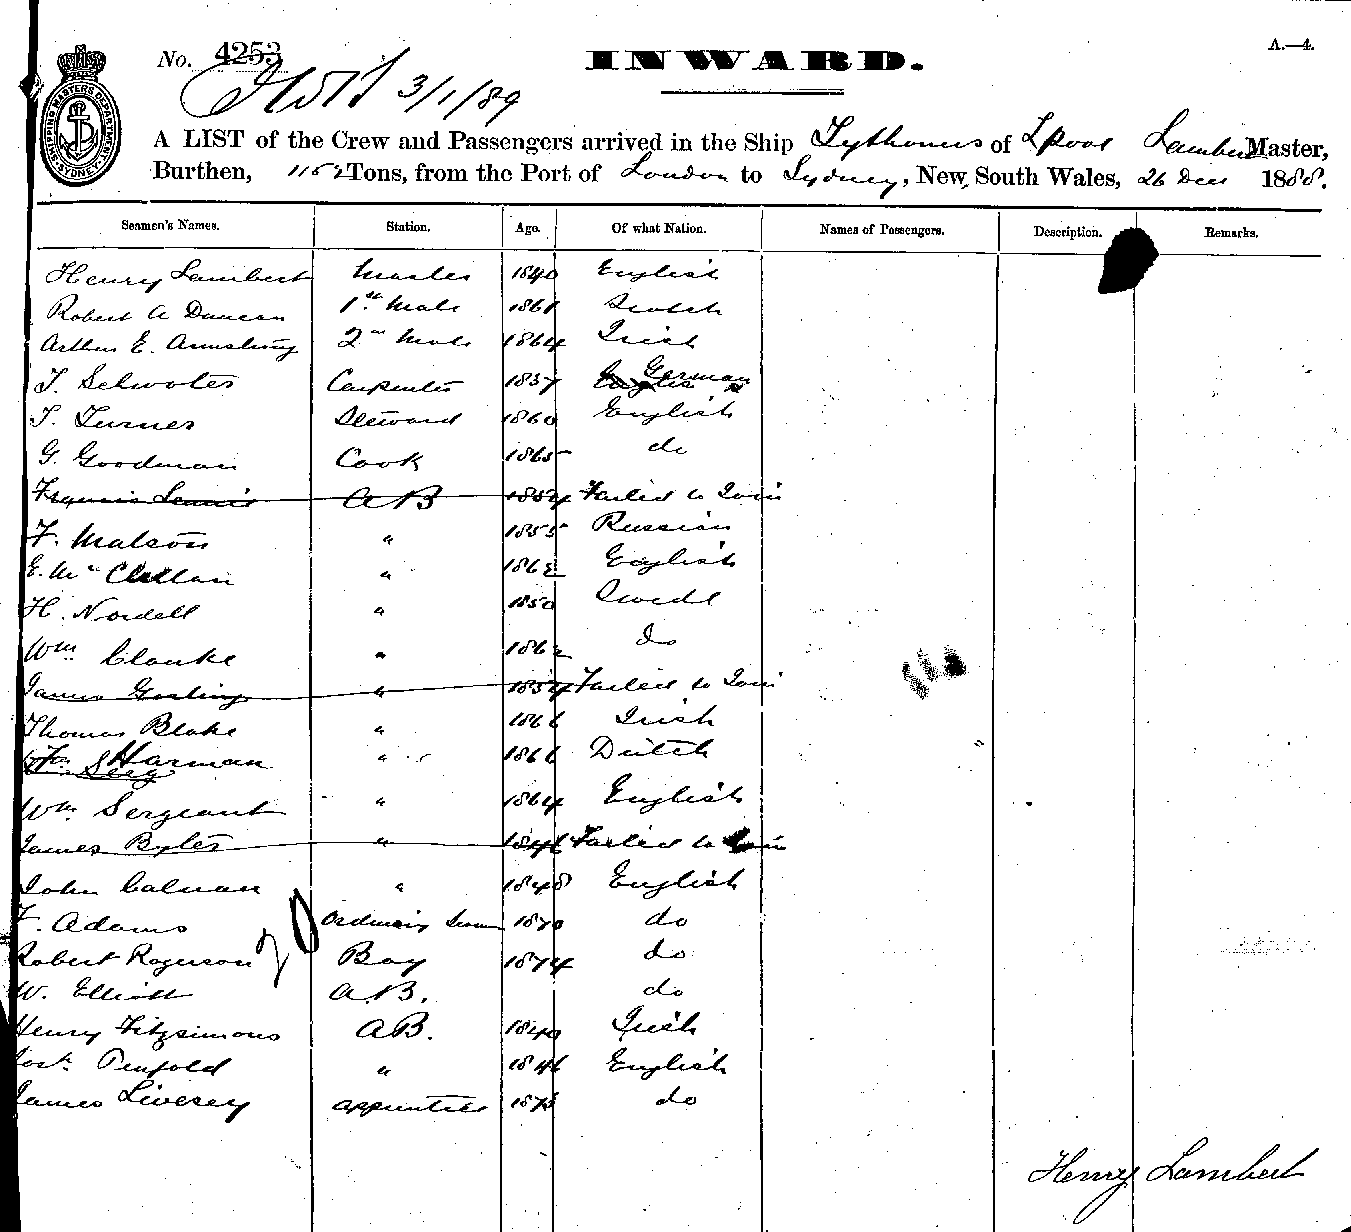 A.—4.
No. 4253
INWARD.
3/1/89
SHIPPING MASTERS DEPARTMENT SYDNEY
A LIST of the Crew and Passengers arrived in the Ship Tythonus of Lpool Lambert Master,
Burthen, 1152 Tons, from the Port of London to Sydney, New South Wales, 26 Dec 1888.
Seamen's Names. Station. Age. Of what Nation. Names of Passengers. Description. Remarks.
Henry Lambert Master 1840 English
Robert A Duncan 1st Mate 1861 Scotch
Arthur E. Armstrong 2nd Mate 1864 Irish
Carpenter 1857 German
T. Turner Steward 1860 English
G. Goodman Cook 1865 do
Francis AB 1854 Failed to Join
F. Matson " 1855 Russian
E. Mc Clellan " 1862 English
H. Nordell " 1850 Swede
Wm Clauke " 1862 do
James Gosling " 1854 Failed to Join
Thomas Blake " 1866 Irish
Harman " 1866 Dutch
Wm Sergeant " 1864 English
James Byles " 1846 Failed to Join
John Calnan " 1848 English
F. Adams Ordinary Seaman 1870 do
Robert Rogerson Boy 1874 do
W. Elliott A.B. do
Henry Fitzsimons AB. 1840 Irish
Josh Penfold " 1846 English
James Livesey apprentice 1873 do
Henry Lambert